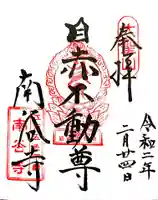 奉拝
令和二年
二月廿四日
目赤不動尊
南谷寺
南谷寺